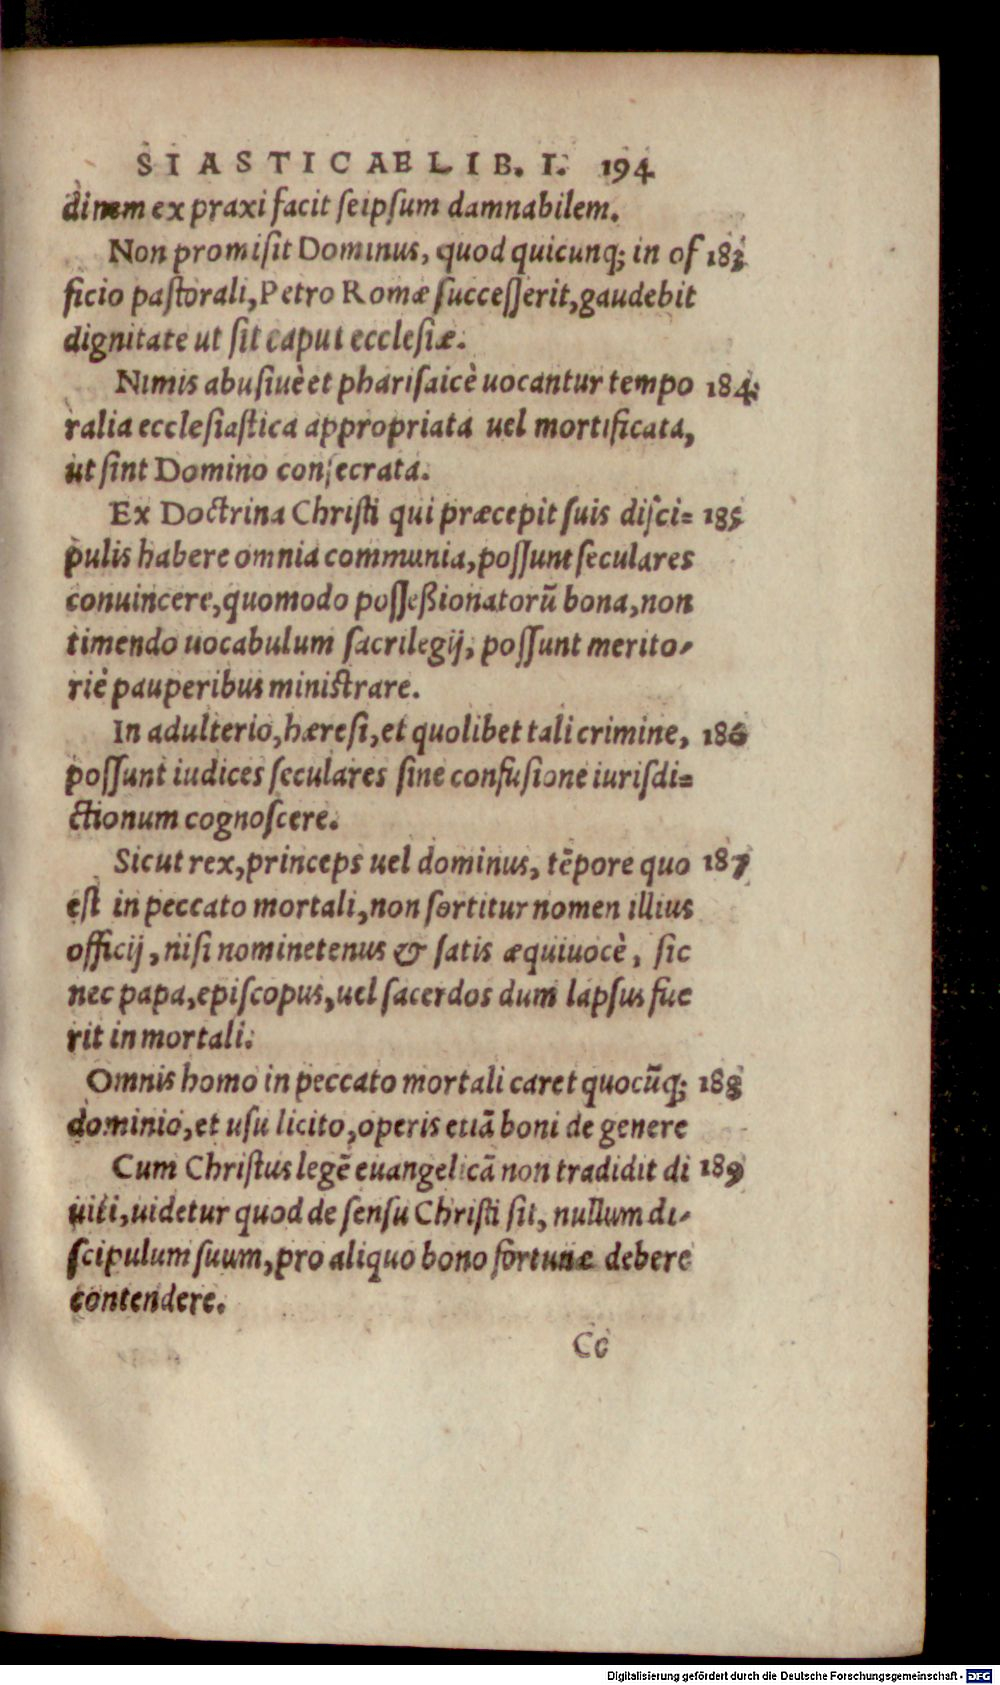 SIASTICAE LIB. I. 194
dinem ex praxi facit seipsum damnabilem.
Non promisit Dominus, quod quicunq; in of 183
ficio pastorali, Petro Romæ successerit, gaudebit
dignitate ut sit caput ecclesiæ.
Nimis abusiuè et pharisaicè uocantur tempo 184
ralia ecclesiastica appropriata uel mortificata,
ut sint Domino consecrata.
Ex Doctrina Christi qui præcepit suis disci= 185
pulis habere omnia communia, possunt seculares
conuincere, quomodo possessionatorũ bona, non
timendo uocabulum sacrilegij, possunt merito-
riè pauperibus ministrare.
In adulterio, hæresi, et quolibet tali crimine, 186
possunt iudices seculares sine confusione iurisdi=
ctionum cognoscere.
Sicut rex, princeps uel dominus, tẽpore quo 187
est in peccato mortali, non sortitur nomen illius
officij, nisi nominetenus & satis æquiuocè, sic
nec papa, episcopus, uel sacerdos dum lapsus fue
rit in mortali.
Omnis homo in peccato mortali caret quocũq; 188
dominio, et usu licito, operis etiã boni de genere
Cum Christus legẽ euangelicã non tradidit di 189
uiti, uidetur quod de sensu Christi sit, nullum di-
scipulum suum, pro aliquo bono fortunæ debere
contendere.
Cc
Digitalisierung gefördert durch die Deutsche Forschungsgemeinschaft - DFG